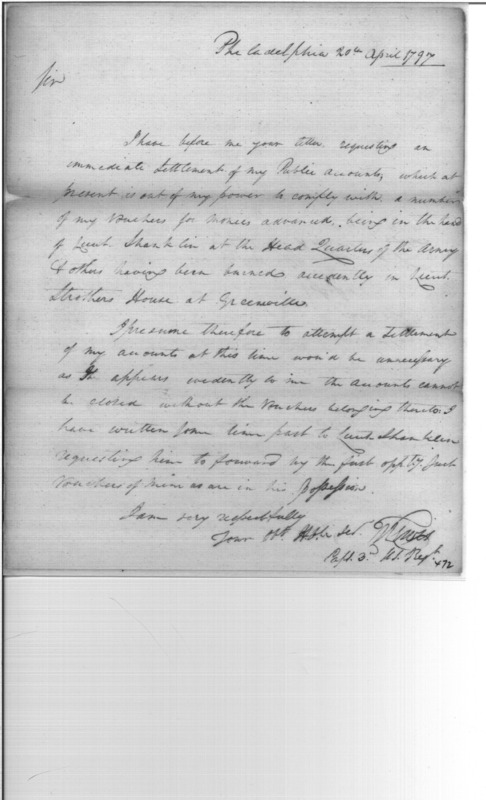 Philadelphia 20th April 1797
Sir
I have before me your letter requesting an
immediate Settlement of my Public accounts, which at
present is out of my power to comply with, a number
of my Vouchers for monies advanced, being in the hand
of Lieut. Shanklin at the Head Quarters of the Army
& others having been burned accidently in Lieut.
Strothers House at Greenville
I presume therefore to attempt a Settlement
of my accounts at this time wou'd be unnecessary
as It appears evidently to me the accounts cannot
be closed without the Vouchers belonging thereto. I
have written some time past to Lieut. Shanklin
requesting him to forward by the first oppty. such
Vouchers of mine as are in his Possession.
I am very respectfully
Your Obt. Hble Set.
Capt. 3rd U.S. Regt.